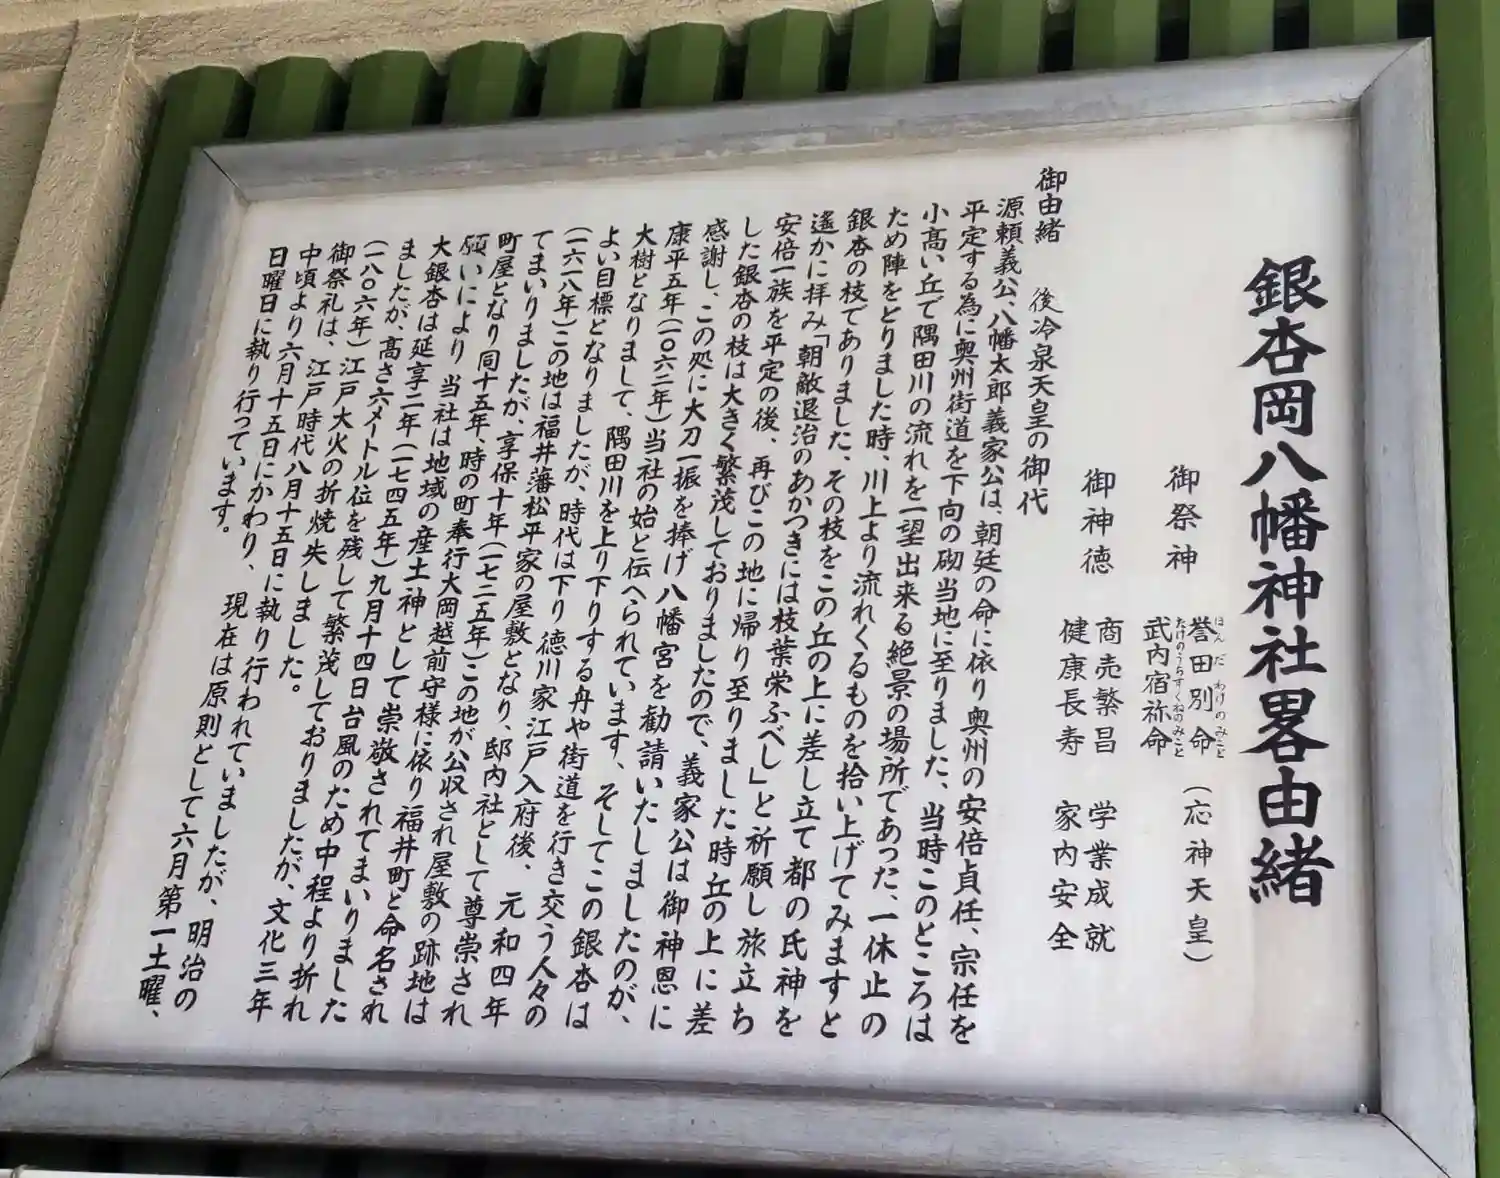 銀杏岡八幡神社畧由緒
御祭神 誉田別命(応神天皇)
ほんだわけのみこと
武内宿祢命
たけのうちすくねのみこと
御神徳 商売繁昌 学業成就
健康長寿 家内安全
御由緒 後冷泉天皇の御代
源頼義公、八幡太郎義家公は、朝廷の命に依り奥州の安倍貞任、宗任を
平定する為に奥州街道を下向の砌当地に至りました、当時このところは
小高い丘で隅田川の流れを一望出来る絶景の場所であった、一休止の
ため陣をとりました時、川上より流れくるものを拾い上げてみますと
銀杏の枝でありました、その枝をこの丘の上に差し立て都の氏神を
遙かに拝み「朝敵退治のあかつきには枝葉栄ふべし」と祈願し旅立ち
安倍一族を平定の後、再びこの地に帰り至りました時丘の上に差
した銀杏の枝は大きく繁茂しておりましたので、義家公は御神恩に
感謝し、この処に大刀一振を捧げ八幡宮を勧請いたしましたのが、
康平五年(一〇六二年)当社の始と伝へられています、そしてこの銀杏は
大樹となりまして、隅田川を上り下りする舟や街道を行き交う人々の
よい目標となりましたが、時代は下り徳川家江戸入府後、元和四年
(一六一八年)この地は福井藩松平家の屋敷となり、邸内社として尊崇され
てまいりましたが、享保十年(一七二五年)この地が公収され屋敷の跡地は
町屋となり同十五年、時の町奉行大岡越前守様に依り福井町と命名され
願いにより当社は地域の産土神として崇敬されてまいりました
大銀杏は延享二年(一七四五年)九月十四日台風のため中程より折れ
ましたが、高さ六メートル位を残して繁茂しておりましたが、文化三年
(一八〇六年)江戸大火の折焼失しました。
御祭礼は、江戸時代八月十五日に執り行われていましたが、明治の
中頃より六月十五日にかわり、現在は原則として六月第一土曜、
日曜日に執り行っています。